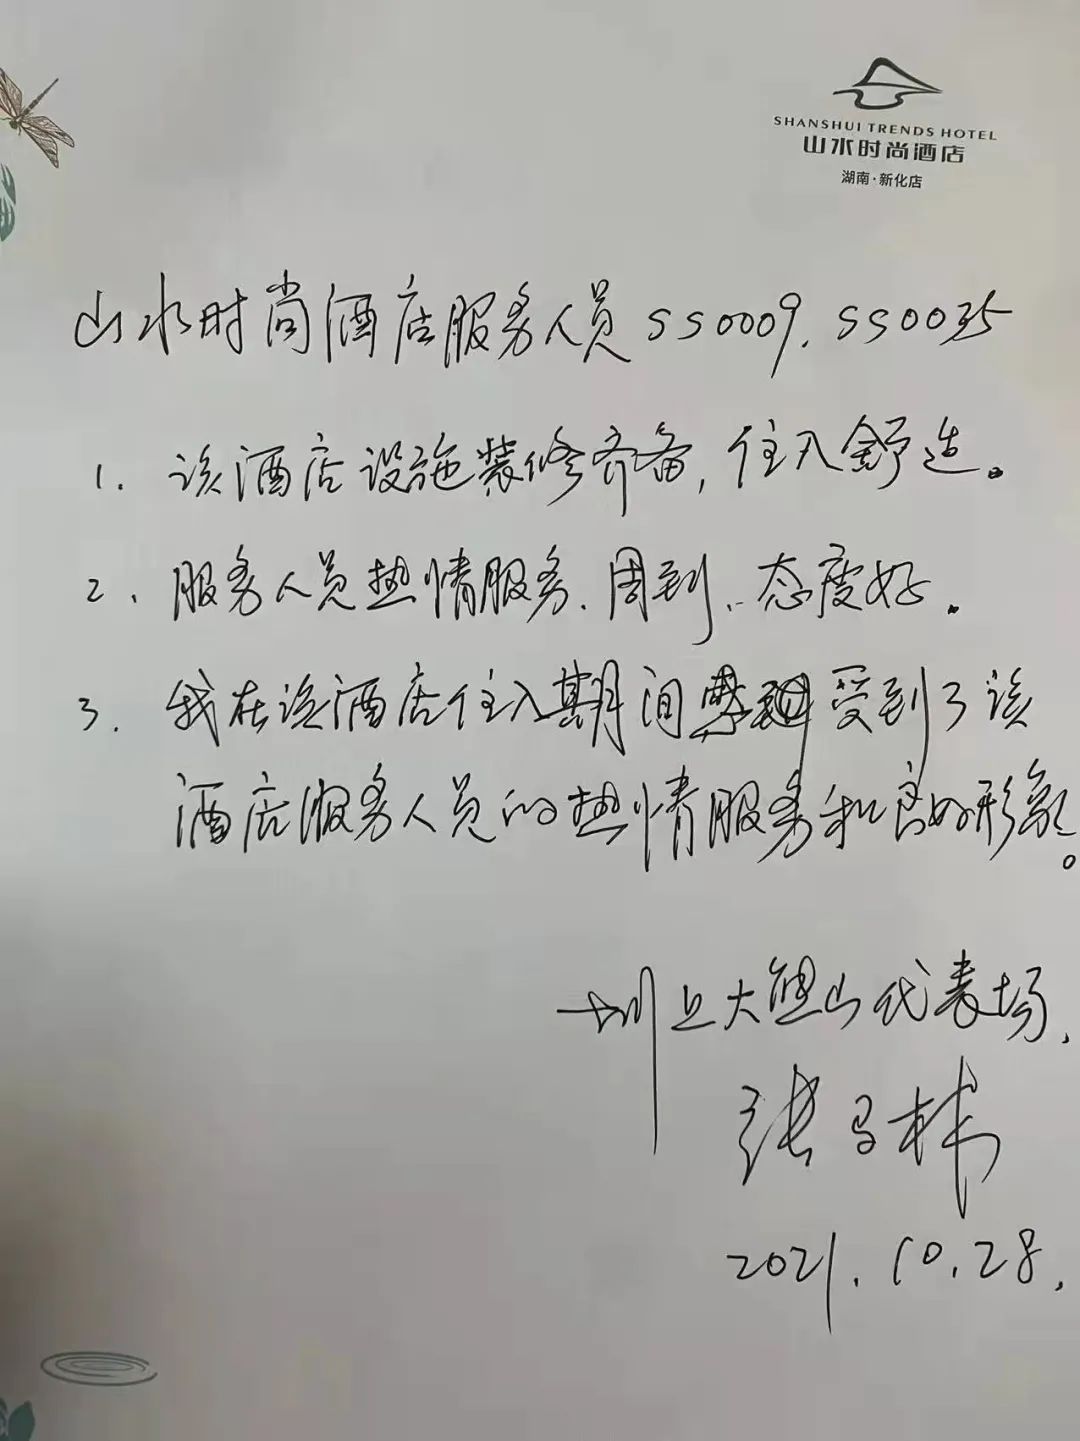 SHANSHUI TRENDS HOTEL
山水时尚酒店
湖南·新化店
山水时尚酒店服务人员SS0009. SS0035
1. 该酒店设施装修齐备, 住入舒适。
2. 服务人员热情服务、周到、态度好.
3. 我在该酒店住入期间受到了该
酒店服务人员的热情服务和良好形象。
上大熊山代表场.
张
2021.10.28.